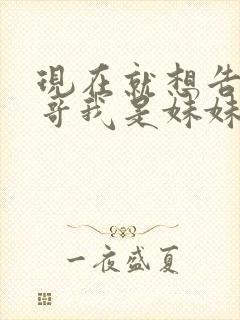 現在就想告
哥我是妹妹
一夜盛夏